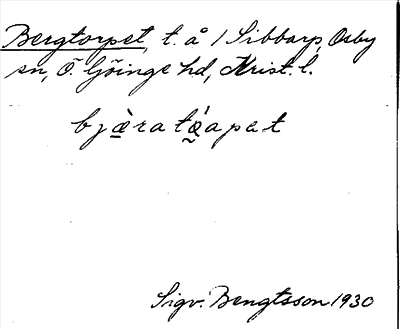 Bergtorpet, t. å 1 Sibbarp, Osby
sn, Ö. Göinge hd, Krist. l.
bjæ̀ratǽapat
Sigv. Bengtsson 1930